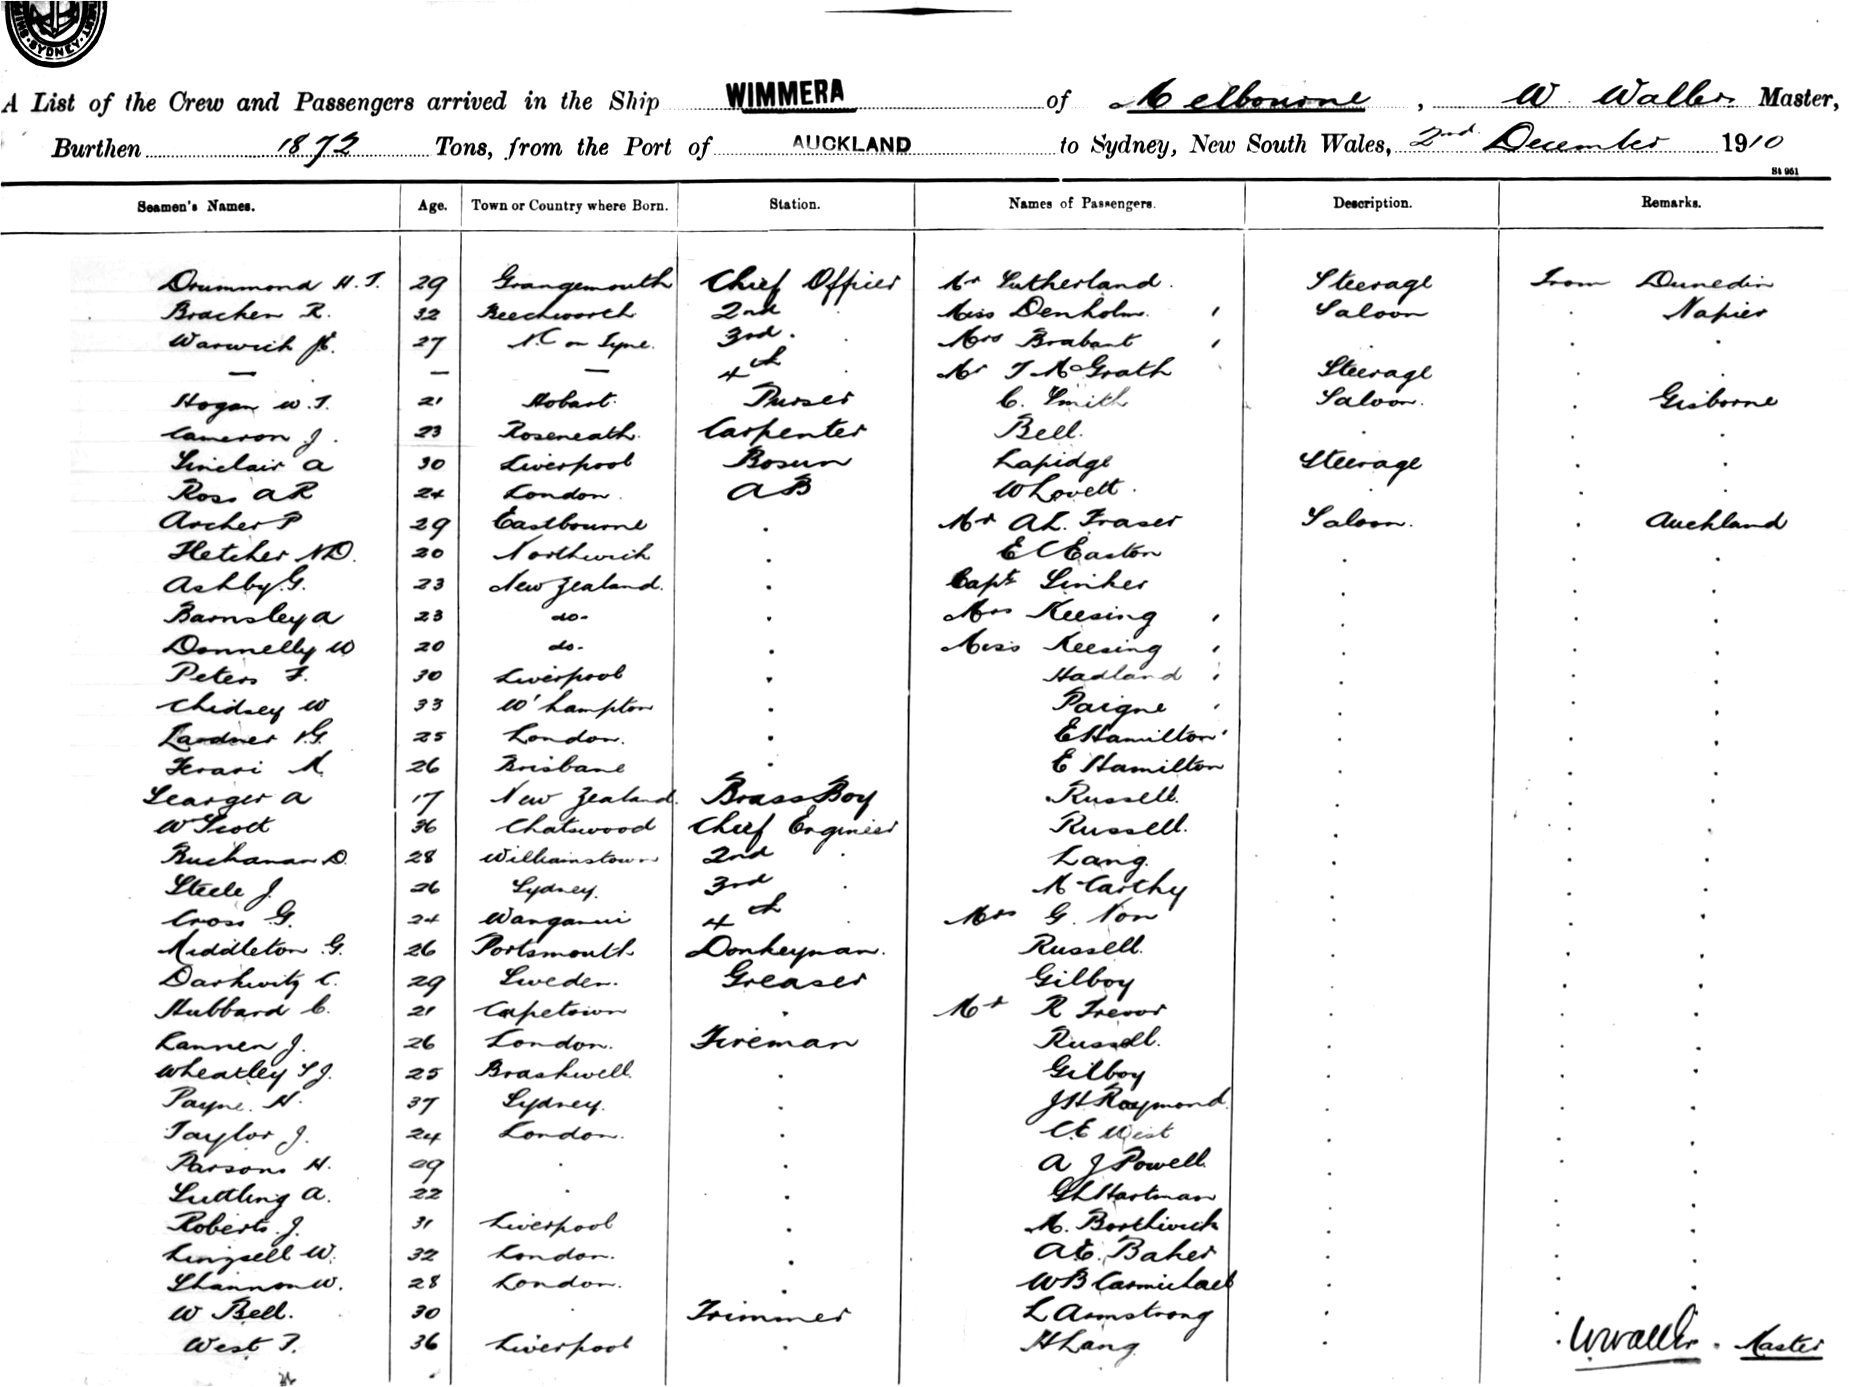 SYDNEY
A List of the Crew and Passengers arrived in the Ship WIMMERA of Melbourne, W Waller Master,
Burthen 1872 Tons, from the Port of AUCKLAND to Sydney, New South Wales, 2nd December 1910
St 961
Seamen's Names. Age. Town or Country where Born. Station. Names of Passengers. Description. Remarks.
Drummond H. T. 29 Grangemouth Chief Officer Mr Sutherland. Steerage From Dunedin
Bracken R. 32 Beechworth 2nd Miss Denholm. Saloon Napier
Warwick 27 N.C on Tyne. 3rd. Mrs Brabant
— — — 4th Mr T McGrath Steerage
Hogan W. T. 21 Hobart. Purser C. Smith Saloon. Gisborne
Cameron J. 23 Roseneath. Carpenter Bell.
Sinclair A 30 Liverpool Bosun Lapidge Steerage
Ross A R 24 London. AB W Lovett.
Archer P 29 Eastbourne Mr A L. Fraser Saloon. Auckland
Fletcher N.D. 20 Northwich E C Easton
Ashby G. 23 New Zealand. Capt Sinker
Barnsley A 23 do- Mrs Keesing
Donnelly W 20 do- Miss Keesing
Peters F. 30 Liverpool Hadland
Chidsey W 33 W'hampton Paigne
Lardner G. 25 London. E Hamilton
Ferari M 26 Brisbane E Hamilton
Searger A 17 New Zealand. Brass Boy Russell.
W Scott 36 Chatswood Chief Engineer Russell.
Buchanan D. 28 Williamstown 2nd Lang.
Steele J. 26 Sydney. 3rd McCarthy
Cross G. 24 Wanganui 4th Mrs G. Non
Middleton G. 26 Portsmouth Donkeyman. Russell.
Darkwitz C. 29 Sweden. Greaser Gilboy
Hubbard C. 21 Capetown Mr R Trevor
Lannen J. 26 London. Fireman Russell.
Wheatley T J. 25 Brashwell. Gilboy
Payne. H. 37 Sydney. J H Raymond.
Taylor J. 24 London. C.E West
Parsons H. 29 A J Powell.
Suttling A. 22 G L Hartman
Roberts J. 31 Liverpool M. Borthwick
Lingsell W. 32 London. A.E. Baker
Shannon W. 28 London. W B Carmichael
W Bell. 30 Trimmer L Armstrong
West T. 36 Liverpool H Lang. W Waller. Master